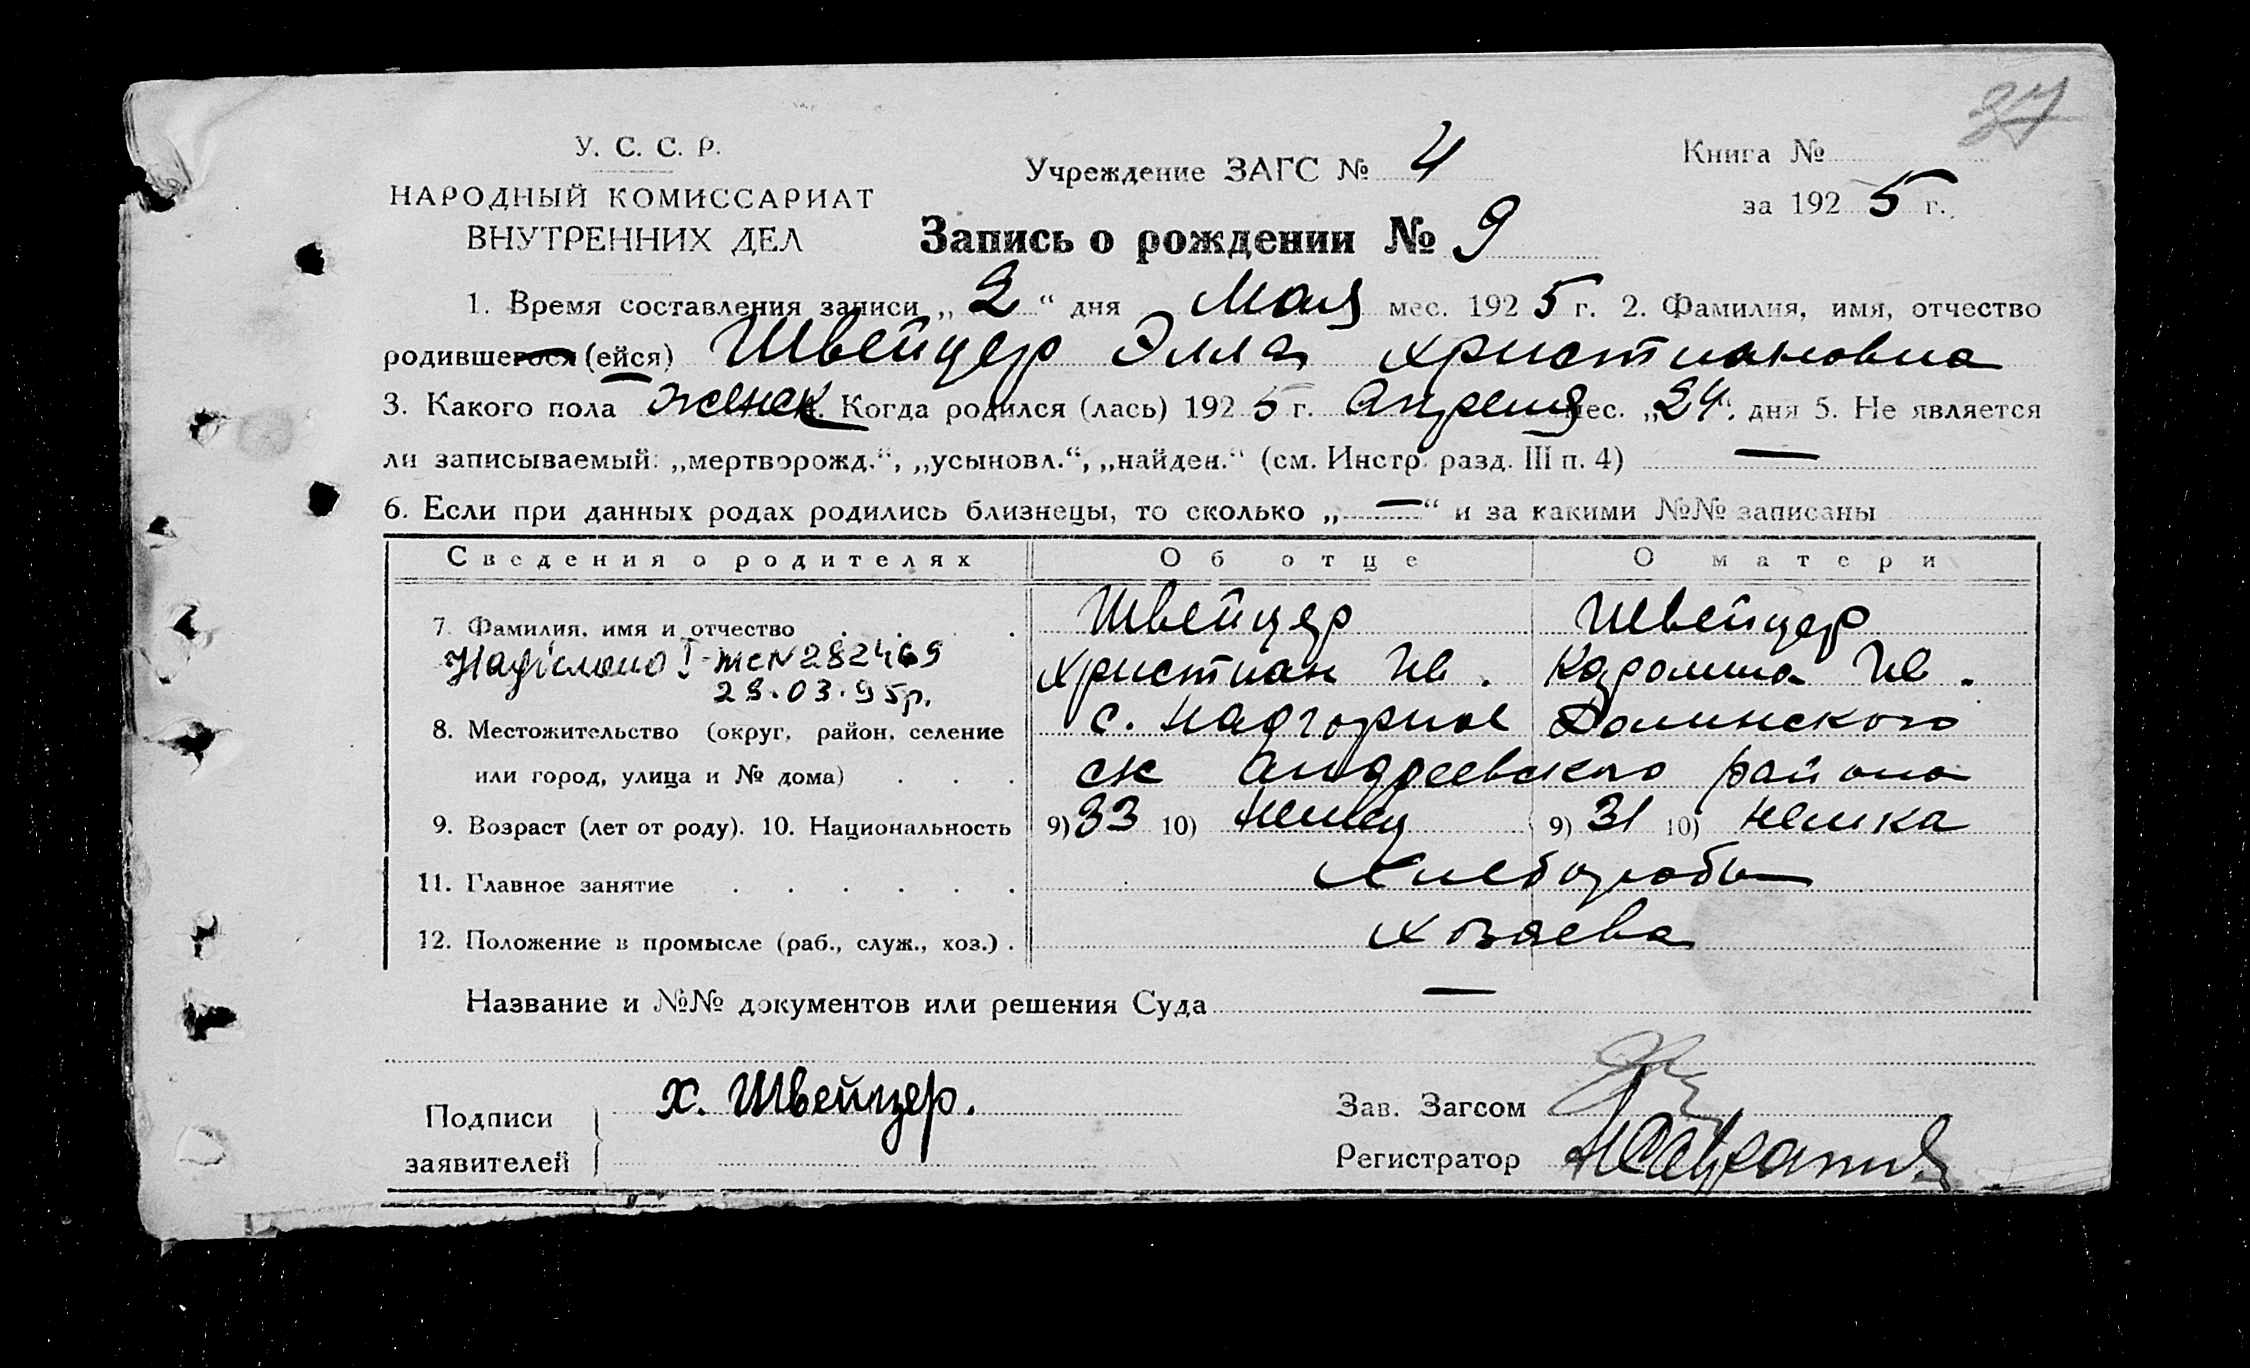 37
У. С. С. Р.
НАРОДНЫЙ КОМИССАРИАТ
ВНУТРЕННИХ ДЕЛ
Учреждение ЗАГС № 4
Книга №
за 1925 г.
Запись о рождении № 9
1. Время составления записи „2“ дня Мая мес. 1925 г. 2. Фамилия, имя, отчество
родившегося (ейся) Швейцер Элла Христиановна
3. Какого пола женск. Когда родился (лась) 1925 г. Апреля мес. „24“. дня 5. Не является
ли записываемый: „мертворожд.“, „усыновл.“, „найден.“ (см. Инстр. разд. III п. 4) —
6. Если при данных родах родились близнецы, то сколько „—“ и за какими №№ записаны
Сведения о родителях Об отце О матери
7. Фамилия, имя и отчество . . . . Швейцер Швейцер
Надіслано І-ЖС N 282469 Христиан Ив. Каролина Ив.
28.03.95р.
8. Местожительство (округ, район, селение с. Надгорное Долинского
или город, улица и № дома) . . . с/с Андреевского района
9. Возраст (лет от роду). 10. Национальность 9) 33 10) Немец 9) 31 10) Немка
11. Главное занятие . . . . . . Хлеборобы
12. Положение в промысле (раб., служ., хоз.) . Хозяева
Название и №№ документов или решения Суда —
Подписи
заявителей
Х. Швейцер.
Зав. Загсом
Регистратор